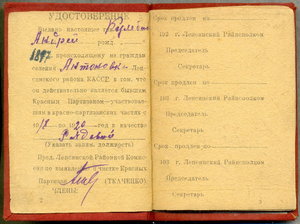 УДОСТОВЕРЕНИЕ
Выдано настоящее
Андрей рожд.
1897 происходящему из граждан
селения Антоновка Леп-
синского района КАССР в том, что
он действительно является бывшим
Красным Партизаном—участвовал
в красно-партизанских частях с
1918 по 1920 год в качестве
Рядовой
(Указать заним. должность)
Пред. Лепсинской Районной Комис-
сии по выявлению и учету Красных
Партизан (ТКАЧЕНКО)
ЧЛЕНЫ:
2
Срок продлен на
193 г. Лепсинский Райисполком
Председатель
Секретарь
Срок продлен на
193 г. Лепсинский Райисполком
Председатель
Секретарь
Срок продлен по
193 г. Лепсинский Райисполком
Председатель
Секретарь
3